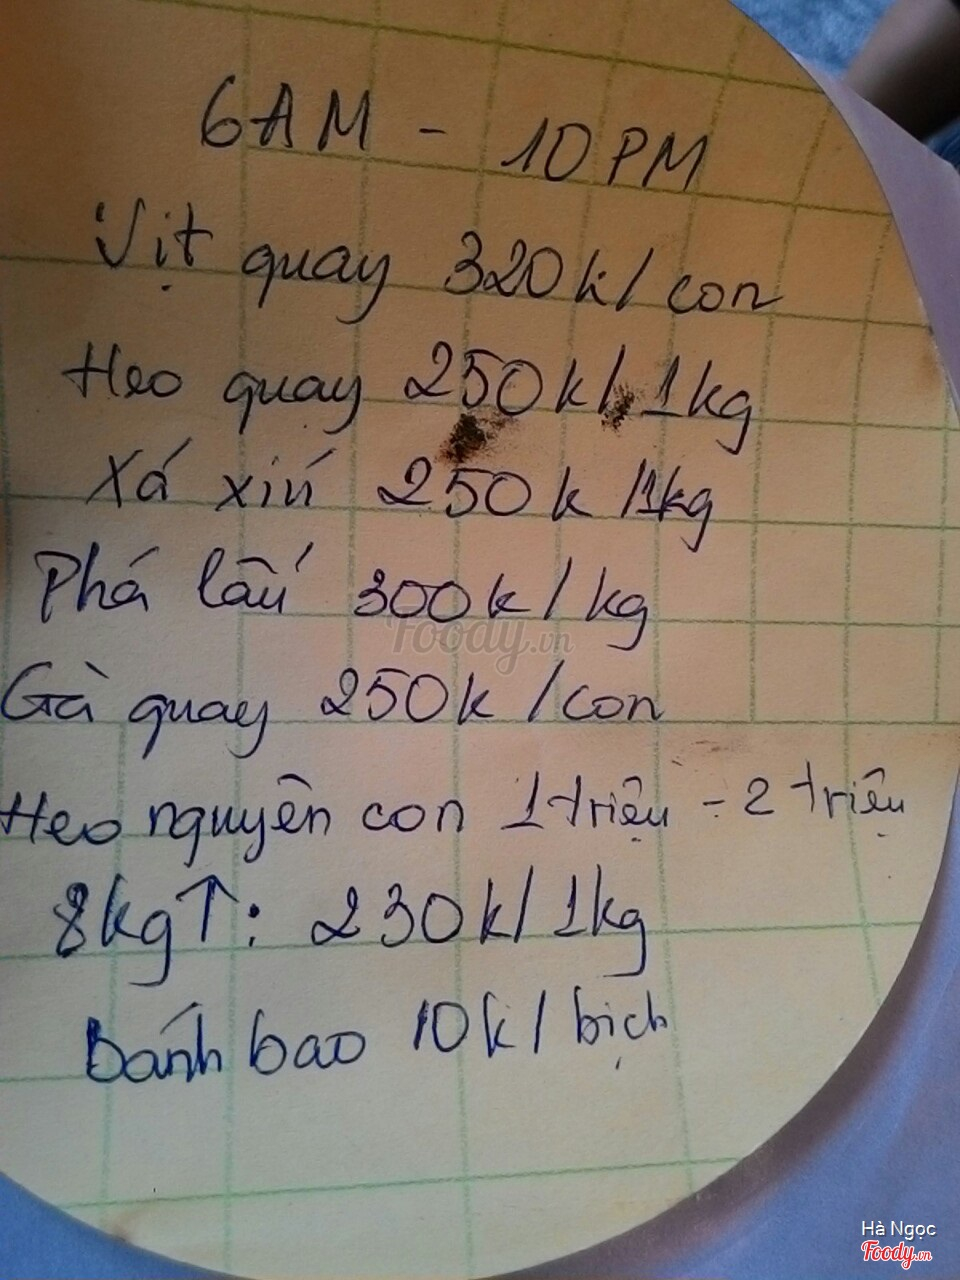 6AM - 10PM
Vịt quay 320k/con
Heo quay 250k/1kg
Xá xíu 250k/1kg
Phá lấu 300k/kg
Foody.vn
Gà quay 250k/con
Heo nguyên con 1triệu - 2 triệu
8kg↑: 230k/1kg
Bánh bao 10k/bịch
Hà Ngọc
Foody.vn